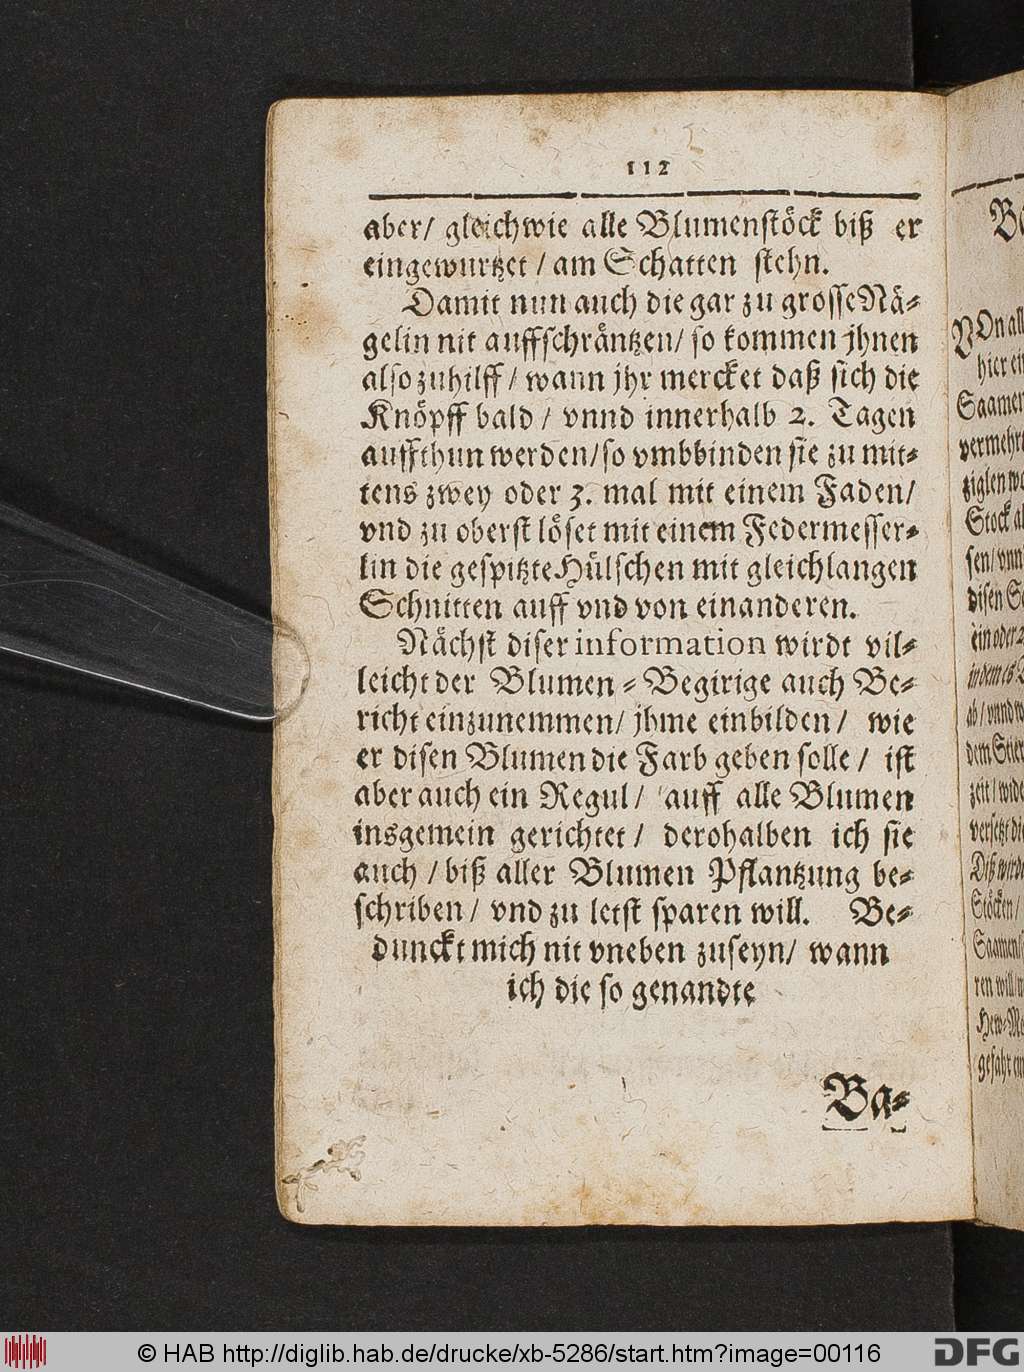 112
aber/ gleichwie alle Blumenstöck biß er
eingewurtzet / am Schatten stehn.
Damit nun auch die gar zu grosse Nä-
gelin nit auffschräntzen/ so kommen jhnen
also zuhilff / wann jhr mercket daß sich die
Knöpff bald / vnnd innerhalb 2. Tagen
auffthun werden/ so vmbbinden sie zu mit-
tens zwey oder 3. mal mit einem Faden/
vnd zu oberst löset mit einem Federmesser-
lin die gespitzte Hülschen mit gleichlangen
Schnitten auff vnd von einanderen.
Nächst diser information wirdt vil-
leicht der Blumen-Begirige auch Be-
richt einzunemmen/ jhme einbilden / wie
er disen Blumen die Farb geben solle / ist
aber auch ein Regul / auff alle Blumen
insgemein gerichtet / derohalben ich sie
auch / biß aller Blumen Pflantzung be-
schriben / vnd zu letst sparen will. Be-
dunckt mich nit vneben zuseyn/ wann
ich die so genandte
Ba-
VOn all
hier ei
Saamen
vermehr
Stock a
sen/ vnn
disen S
ein oder 2
dem Stier
zeit/ wide
versetzt di
Diß wird
Stöcken/
gefahr ein
© HAB http://diglib.hab.de/drucke/xb-5286/start.htm?image=00116
DFG